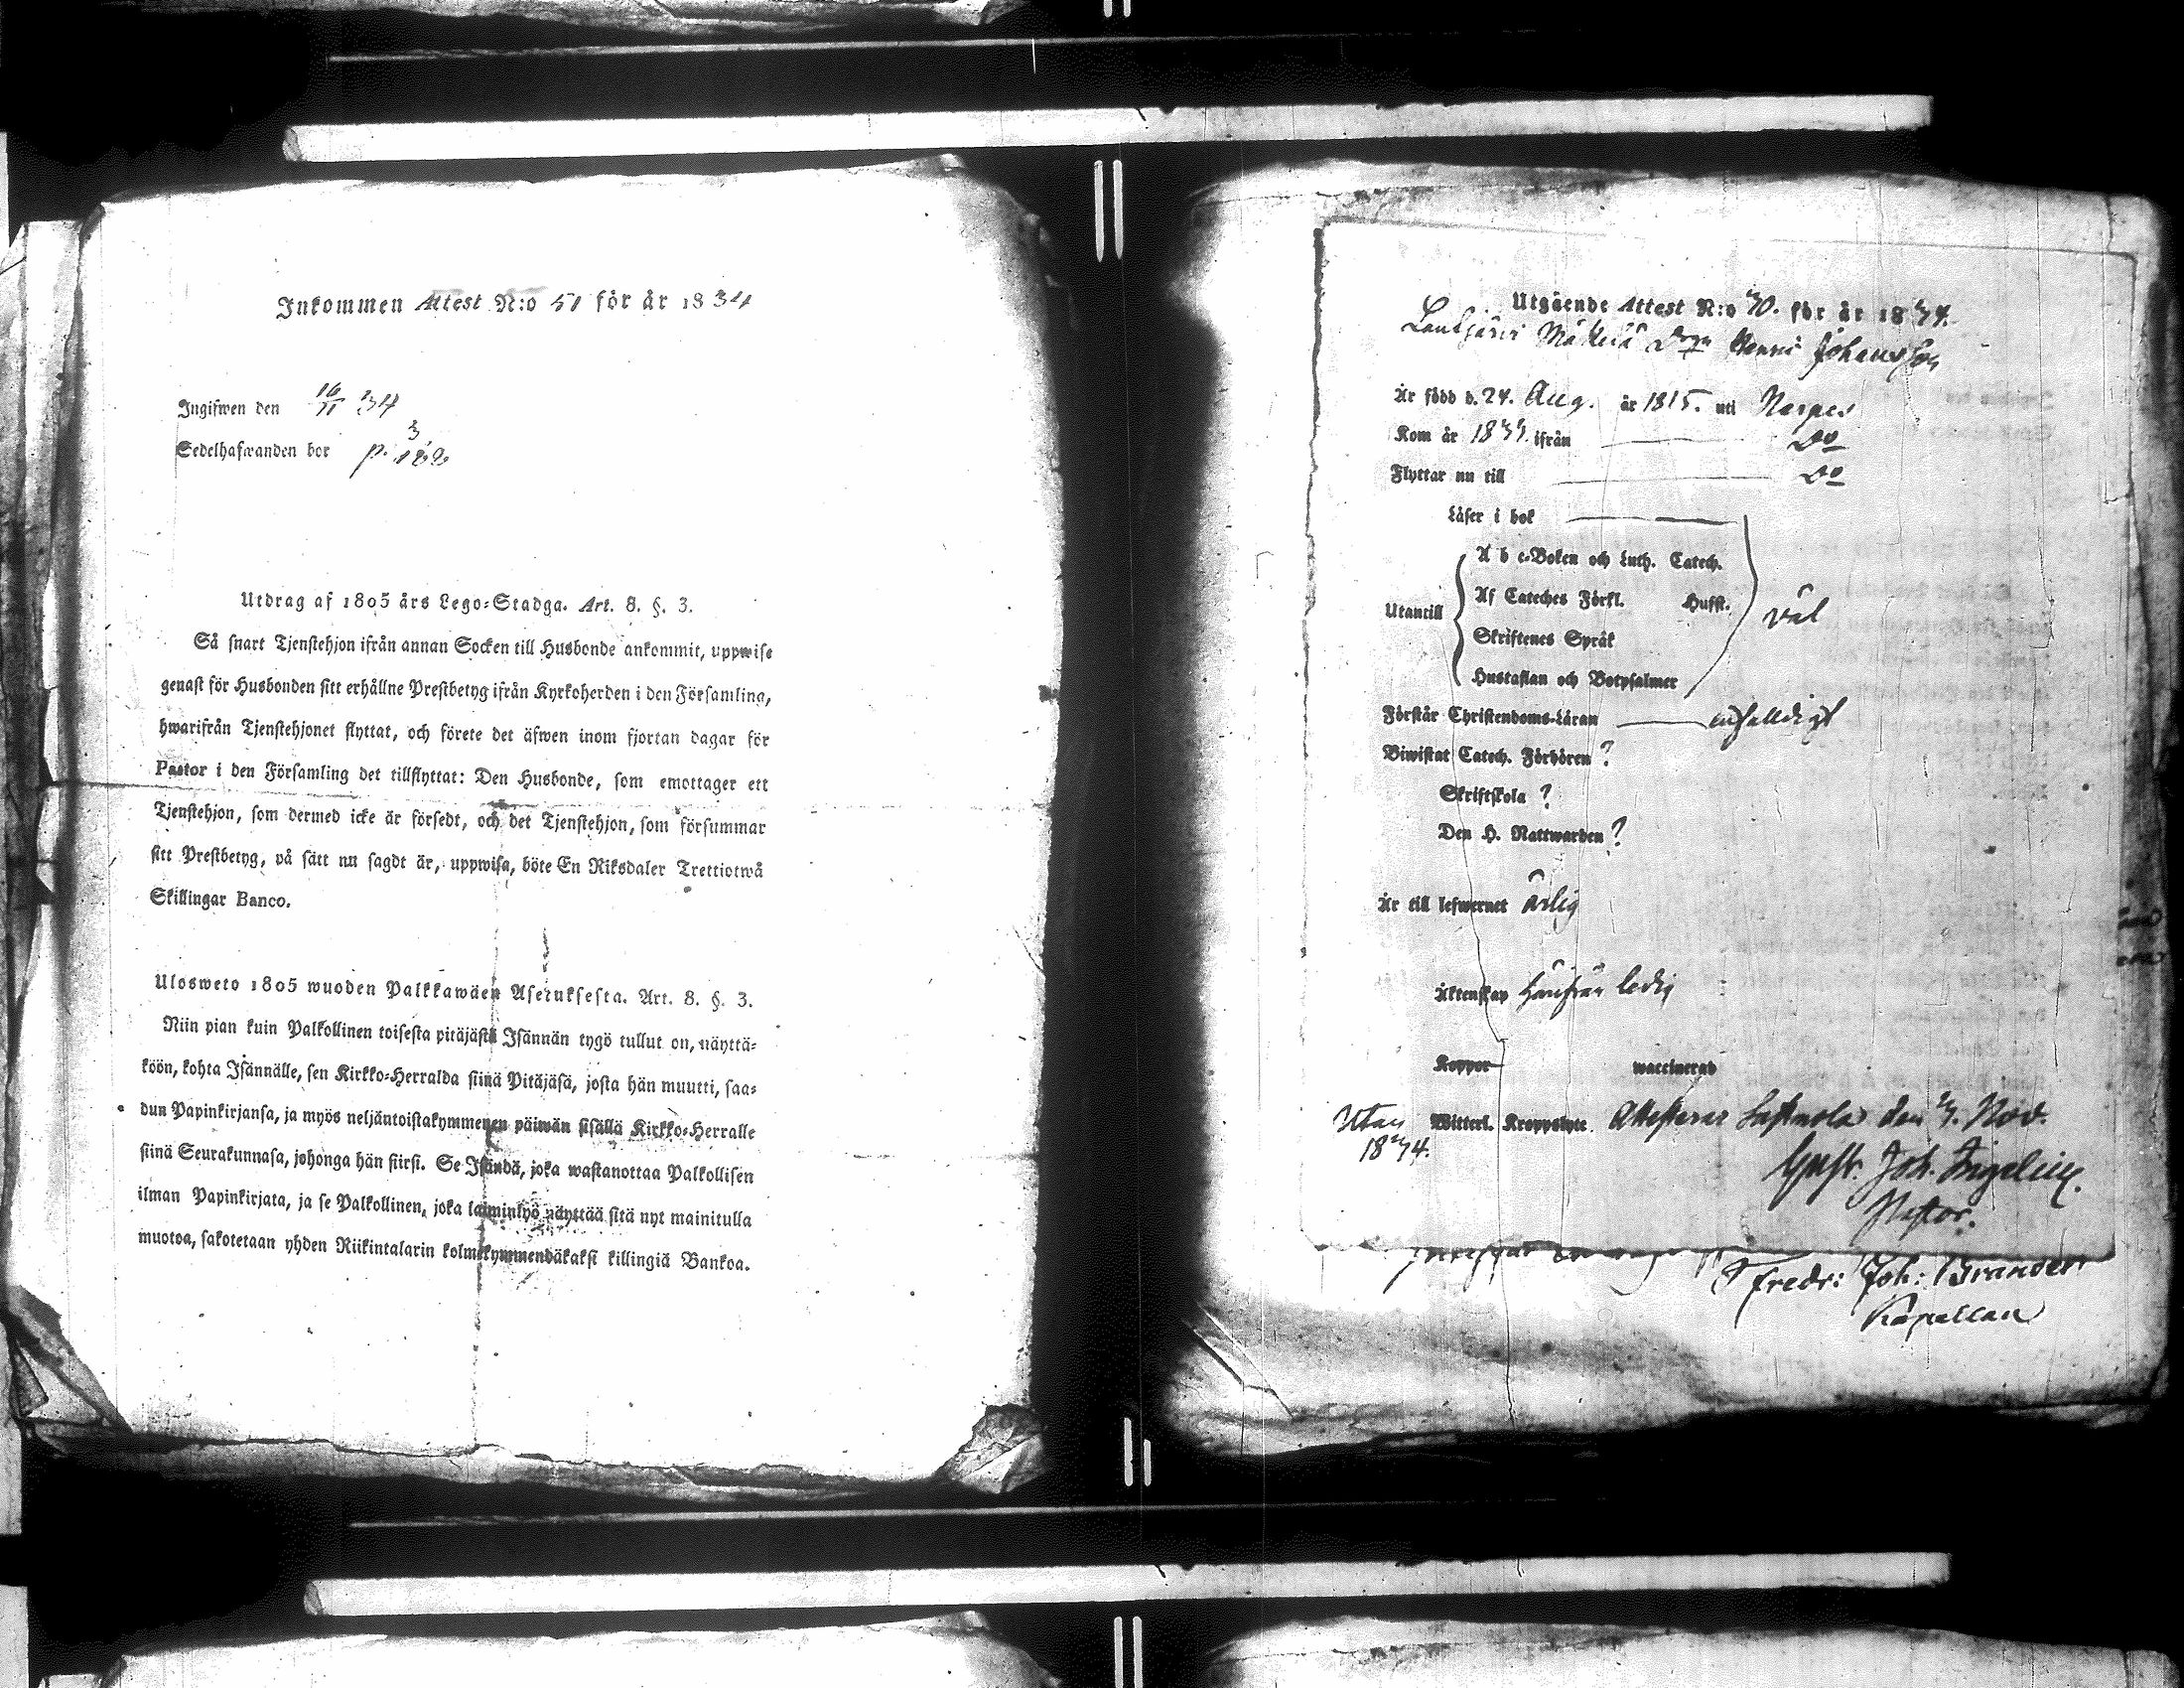 Inkommen Attest N:o 51 för år 1834
Ingifwen den 16/11 34
Sedelhafwanden bor p.
Utdrag af 1805 års Lego-Stadga. Art. 8. §. 3.
Så snart Tjenstehjon ifrån annan Socken till Husbonde ankommit, uppwise
genast för Husbonden sitt erhållne Prestbetyg ifrån Kyrkoherden i den Församling,
hwarifrån Tjenstehjonet flyttat, och förete det äfwen inom fjortan dagar för
Pastor i den Församling det tillflyttat: Den Husbonde, som emottager ett
Tjenstehjon, som dermed icke är försedt, och det Tjenstehjon, som försummar
sitt Prestbetyg, på sätt nu sagdt är, uppwisa, böte En Riksdaler Trettiotwå
Skillingar Banco.
Ulosweto 1805 wuoden Palkkawäen Asetuksesta. Art. 8. §. 3.
Niin pian kuin Palkollinen toisesta pitäjästä Isännän tygö tullut on, näyttä-
köön, kohta Isännälle, sen Kirkko-Herralda siinä Pitäjäsä, josta hän muutti, saa-
dun Papinkirjansa, ja myös neljäntoistakymmenen päiwän sisällä Kirkko-Herralle
siinä Seurakunnasa, johonga hän siirsi. Se Isändä, joka wastanottaa Palkollisen
ilman Papinkirjata, ja se Palkollinen, joka laiminlyö näyttää sitä nyt mainitulla
muotoa, sakotetaan yhden Riikintalarin kolmekymmendäkaksi killingiä Bankoa.
Utgående Attest N:o 70. för år 1834.
Mäkelä Johansson
Är född d. 24. Aug. år 1815. uti Nerpes
Kom år 1833. ifrån Do
Flyttar nu till Do
Läser i bok
A b c-Boken och Luth. Catech.
Utantill Af Cateches Förkl. Husst.
Skriftenes Språk väl
Hustaflan och Botpsalmer
Förstår Christendoms-Läran enfaldigt
Biwistat Catech. Förhören ?
Skriftskola ?
Den H. Nattwarden ?
Är till lefwernet ärlig
Äktenskap härifrån ledig
Koppor waccinerad
Utan Witterl. Kroppslyte. Attesterar Lappmola den 3. Nov.
1834.
Gust. Joh. Ingelius.
Pastor.
Fredr: Joh: Brander
Kapellan